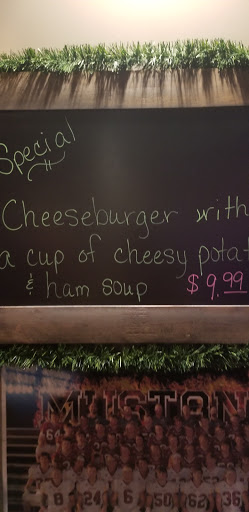 Special
Cheeseburger with
a cup of cheesy potat
& ham soup $9.99
MUSTON
8 24 6 50 62 36